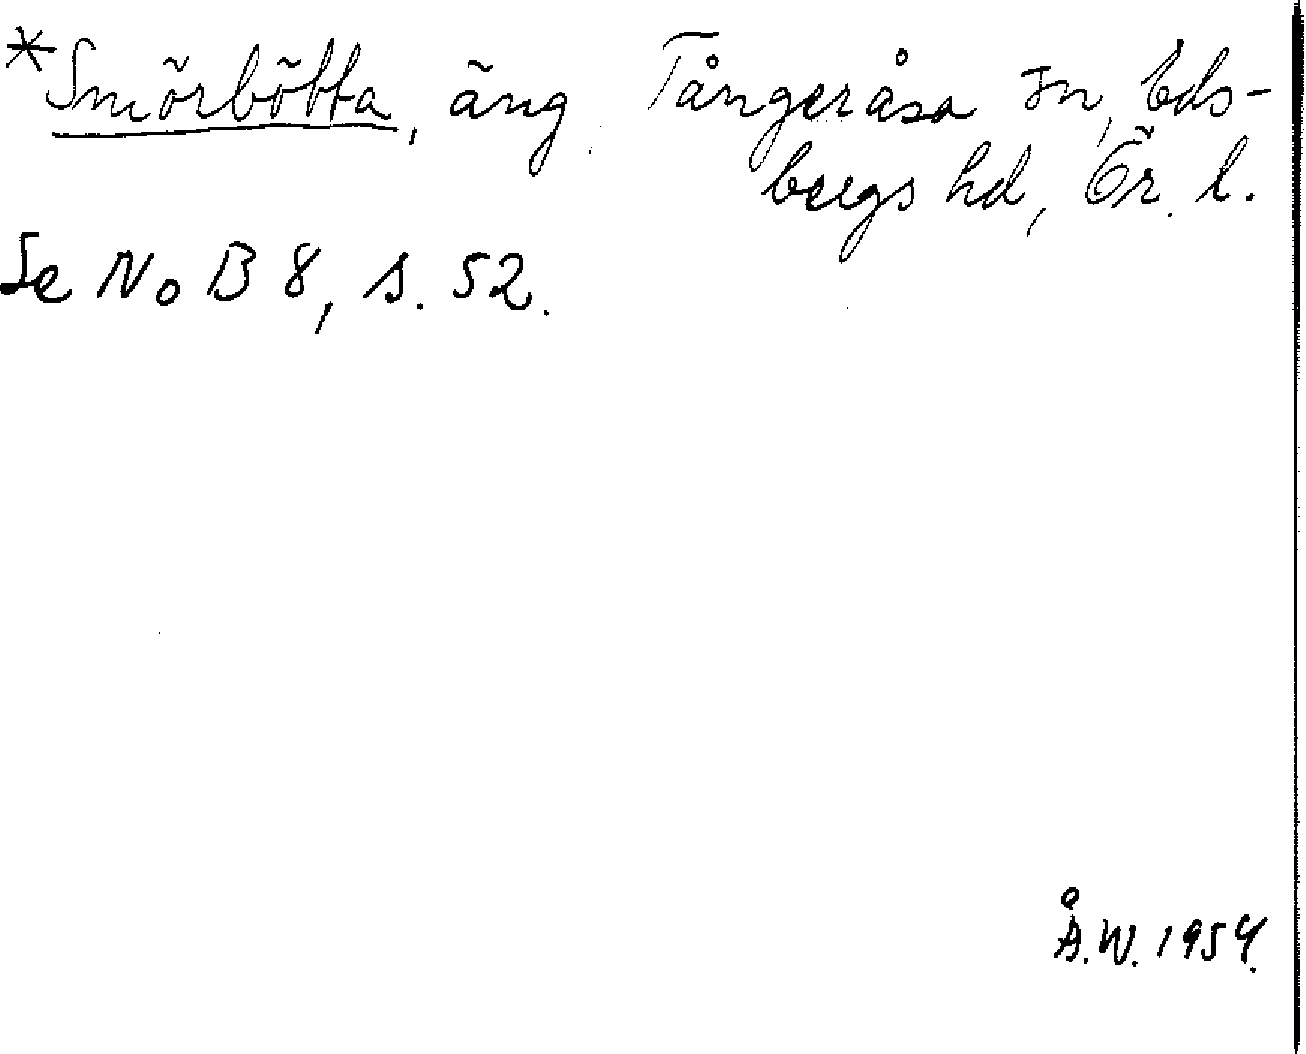 *Smörbötta, äng. Tångeråsa sn, Eds-
bergs hd, Ör. l.
Se NoB 8, s. 52.
Å.W. 1954.